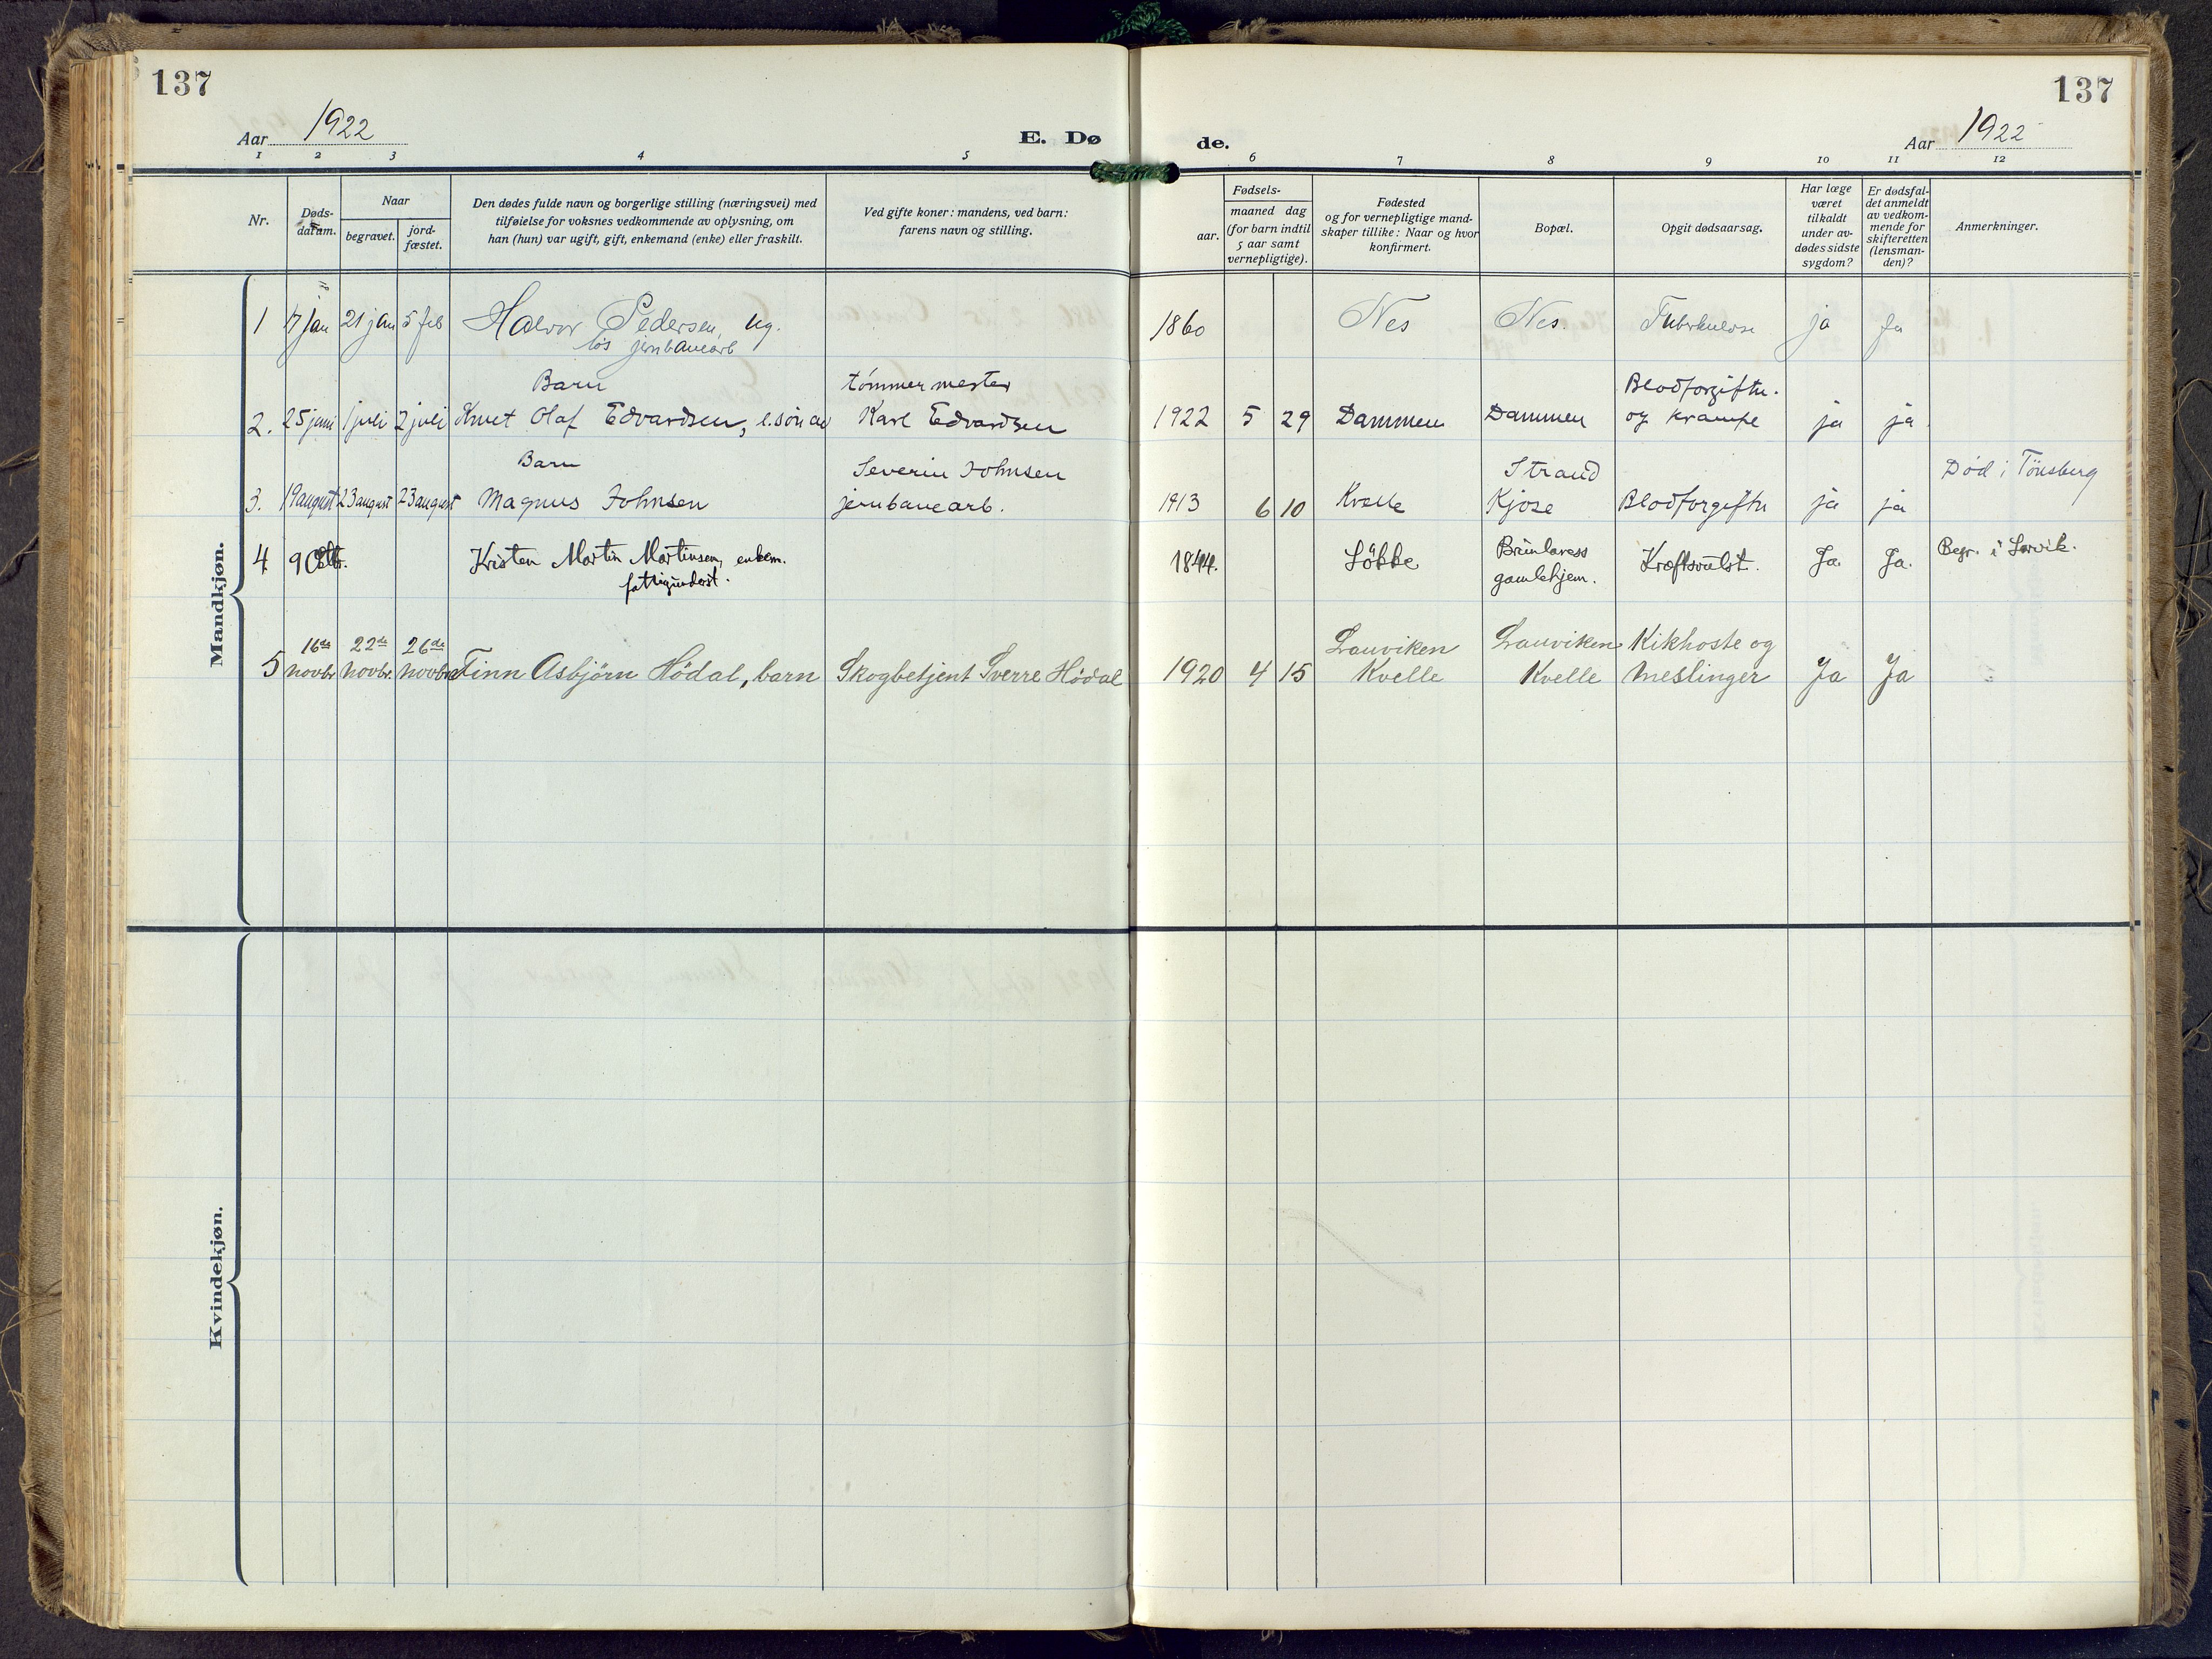 137
137
Aar 1922
E. Dø
de.
Aar 1922
1 2 3 4 5 6 7 8 9 10 11 12
Nr.
Døds-
datum.
Naar
begravet.
jord-
fæstet.
Den dødes fulde navn og borgerlige stilling (næringsvei) med
tilføielse for voksnes vedkommende av oplysning, om
han (hun) var ugift, gift, enkemand (enke) eller fraskilt.
Ved gifte koner: mandens, ved barn:
farens navn og stilling.
Fødsels-
aar.
maaned dag
(for barn indtil
5 aar samt
vernepligtige).
Fødested
og for vernepligtige mand-
skaper tillike: Naar og hvor
konfirmert.
Bopæl.
Opgit dødsaarsag.
Har læge
været
tilkaldt
under av-
dødes sidste
sygdom?
Er dødsfal-
det anmeldt
av vedkom-
mende for
skifteretten
(lensman-
den)?
Anmerkninger.
Mandkjøn.
1 7 jan 21 jan 5 feb Halvor Pedersen, ug. 1860 Nes Nes. Tuberkulose ja Ja
løs jernbanearb
Barn tømmermester Blodforgiftn.
2. 25 juni 1 juli 2 juli Knut Olaf Edvardsen, e. søn av Karl Edvardsen 1922 5 29 Dammen Dammen og krampe ja ja
Barn Severin Johnsen Strand Død i Tønsberg
3. 19 august 23 august 23 august Magnus Johnsen jernbanearb. 1913 6 10 Kvelle Kjose Blodforgiftn ja ja
4 9 Oktbr. Kristen Martin Martinsen, enkem. 1844. Løbbe Brunlaness Kræftsvulst. Ja. Ja. Begr. i Larvik.
fattigunderst. gamlehjem.
16de 22de 26de Lauviken Lauviken Kikhoste og
5 novbr novbr. novbr Finn Asbjørn Hödal, barn Skogbetjent Sverre Hödal 1920 4 15 Kvelle Kvelle meslinger Ja Ja
Kvindekjøn.